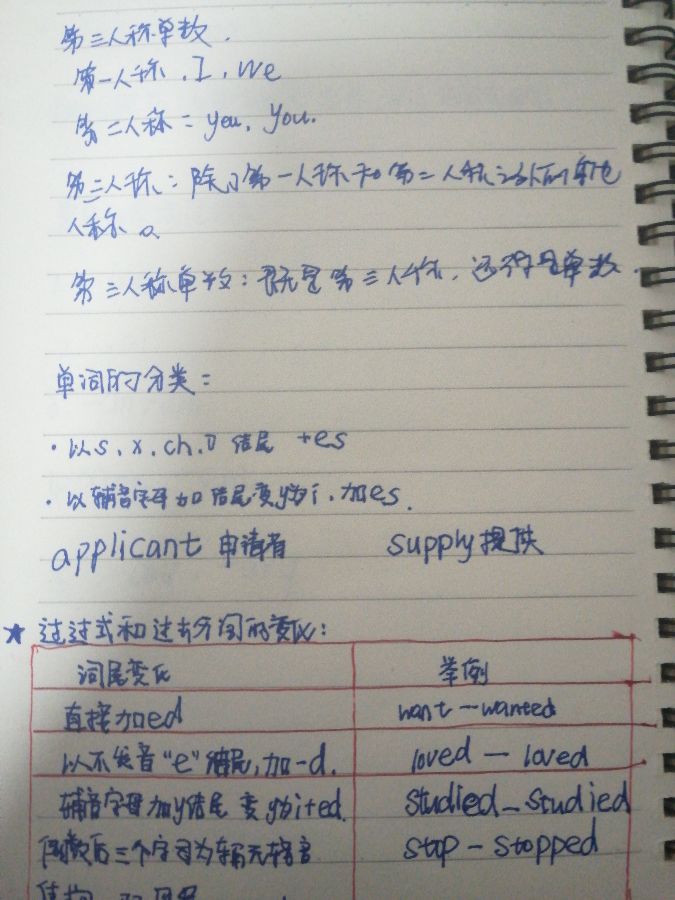 第三人称单数.
第一人称.I.we
第二人称=you.you.
第三人称:除了第一人称和第二人称之外的其他
人称。
第三人称单数:既是第三人称.还得是单数.
单词的分类:
·以s.x.ch.o结尾 +es
·以辅音字母加结尾变y为i.加es.
applicant 申请者 supply提供
★过过式和过去分词的变化:
词尾变化 举例
直接加ed want—wanted
以不发音"e"结尾,加-d. loved—loved
辅音字母加y结尾 变y为ited. studied—studied
后三个字母为辅元辅音 stop—stopped
结构